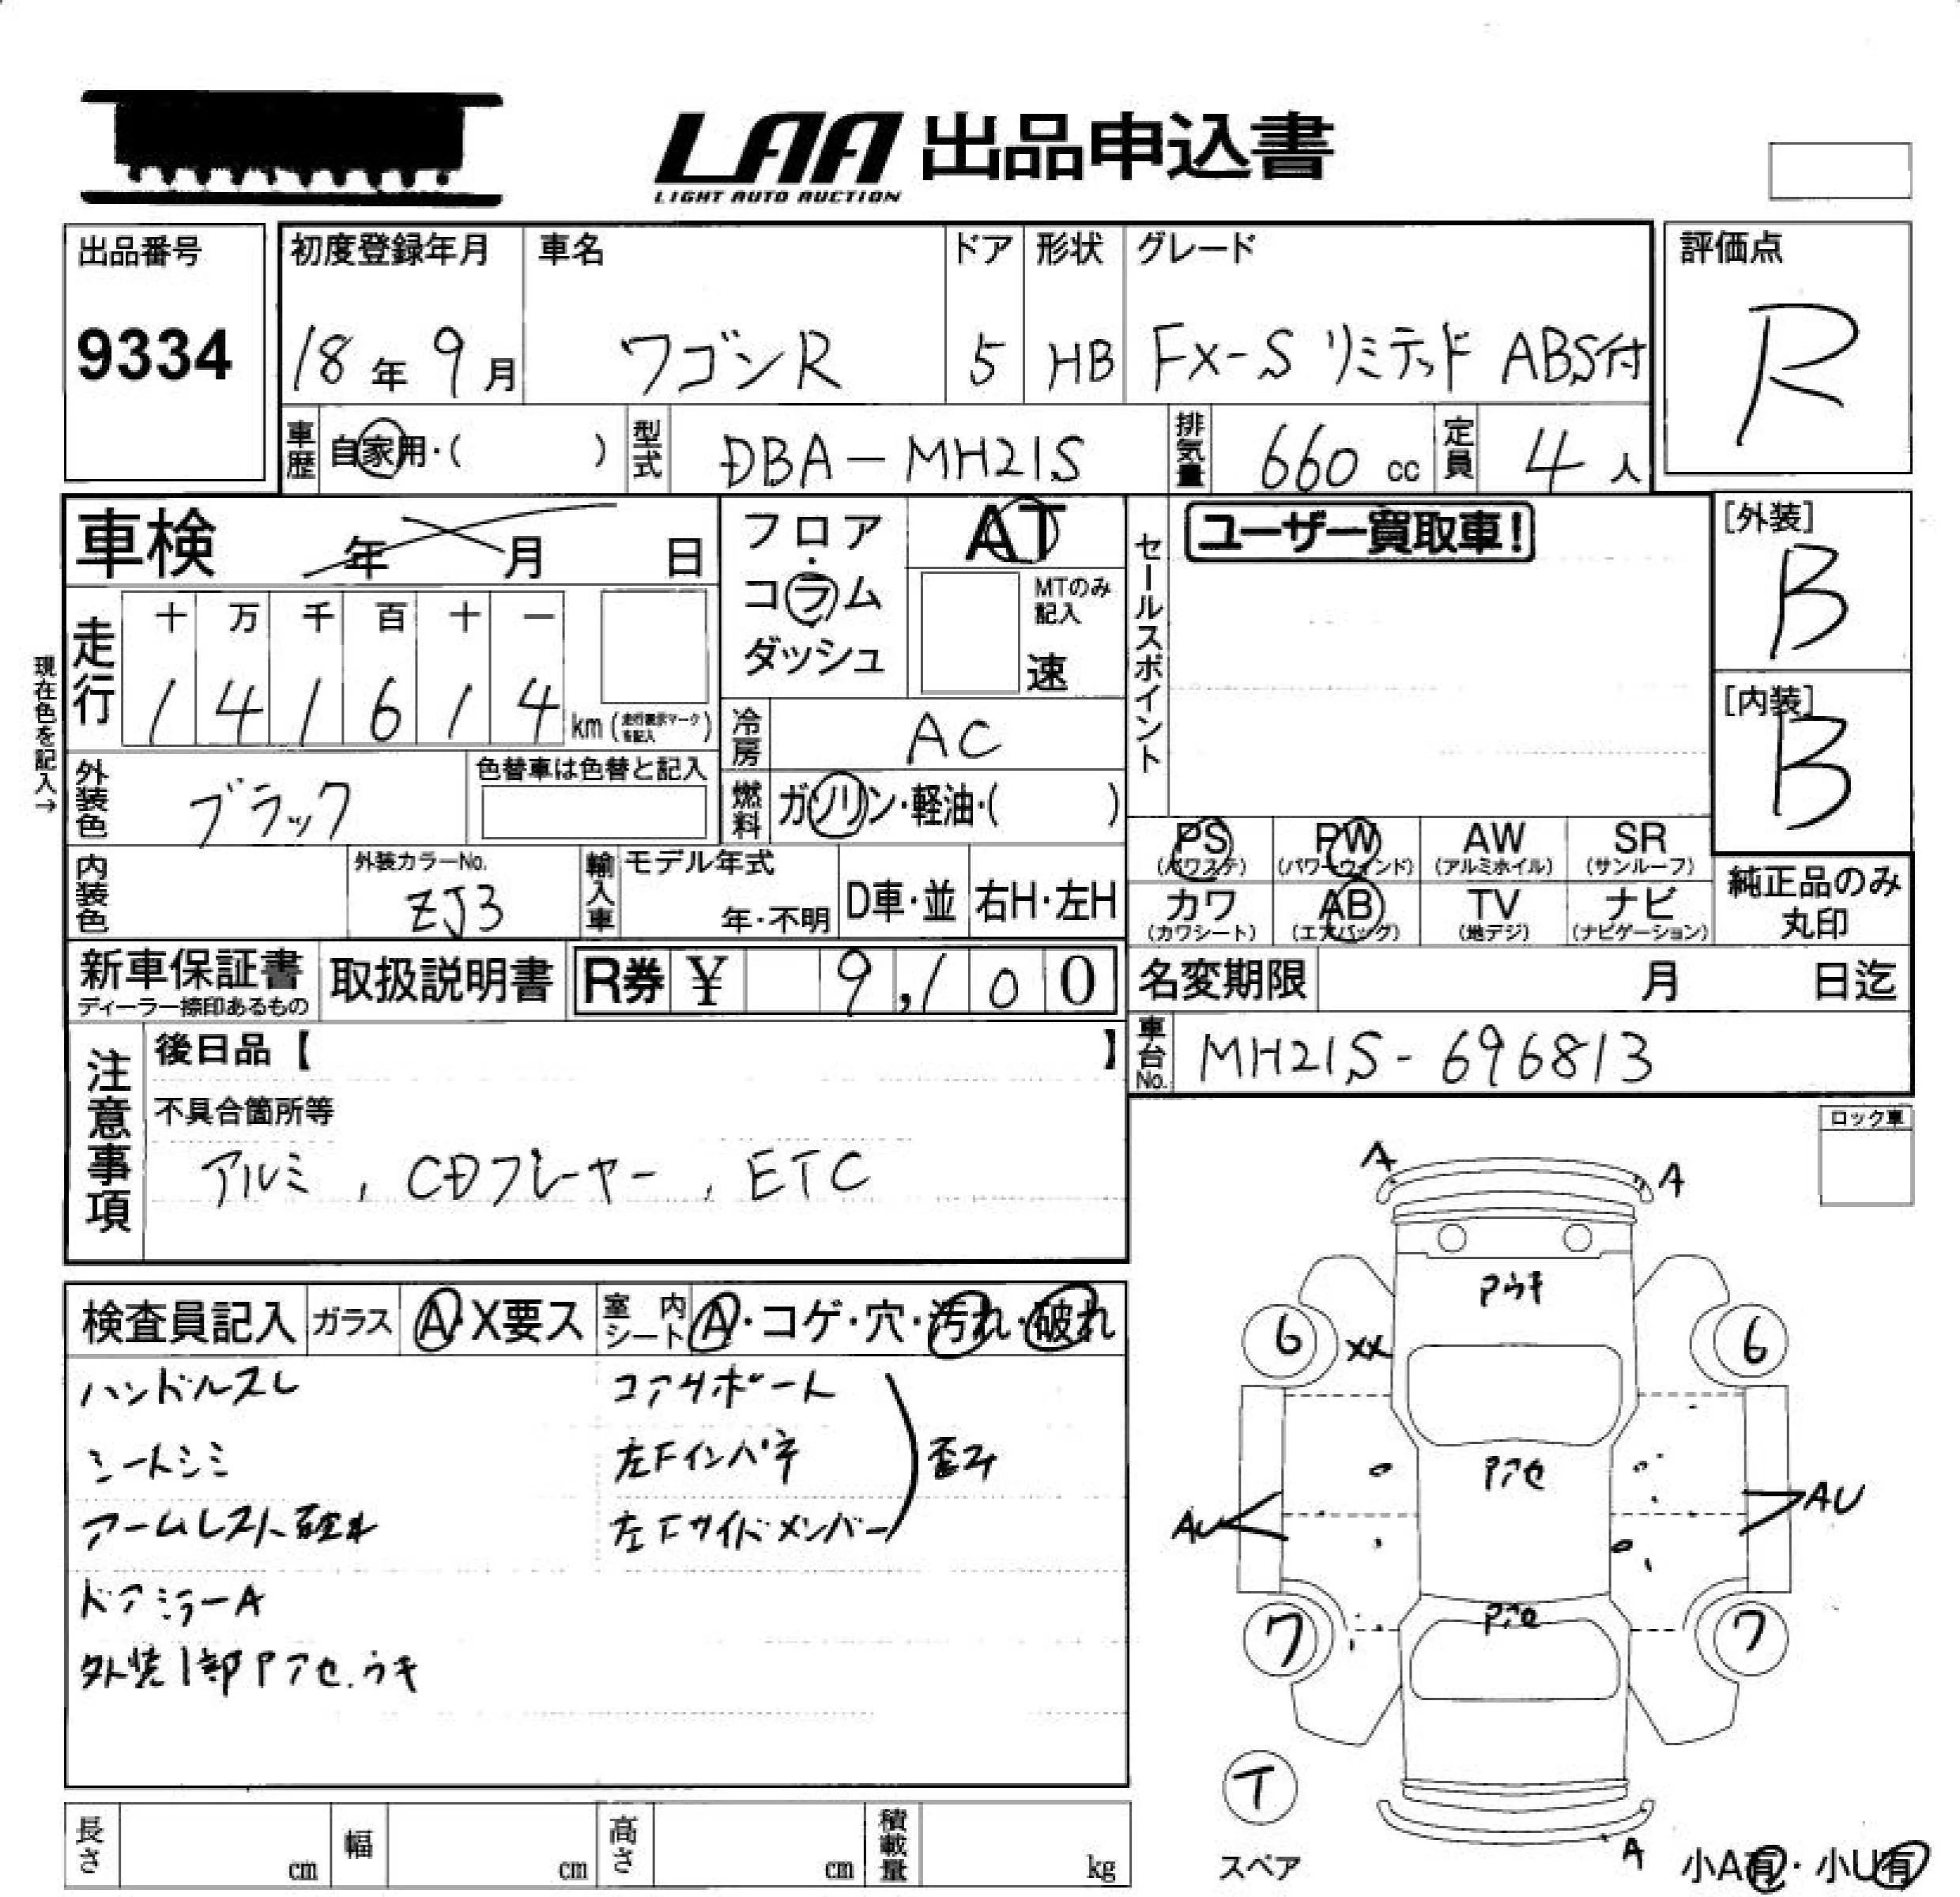 LAA 出品申込書
LIGHT AUTO AUCTION
出品番号
9334
初度登録年月
18年9月
車名
ワゴンR
ドア
5
形状
HB
グレード
FX-S リミテッド ABS付
評価点
R
車歴
自家用・( )
型式
DBA-MH21S
排気量
660 cc
定員
4人
車検 年 月 日
フロア・
コラム
ダッシュ
AT
MTのみ
記入
速
セールスポイント
ユーザー買取車!
[外装]
B
[内装]
B
現在色を記入→
走行
十 万 千 百 十 一
1 4 1 6 1 4 km (走行表示マークを記入)
冷房
AC
外装色
ブラック
色替車は色替と記入
燃料
ガソリン・軽油・( )
PS AW SR
(パワステ) (アルミホイル) (サンルーフ)
PW
(パワーウィンド)
カワ AB TV ナビ
(カワシート) (エアバッグ) (地デジ) (ナビゲーション)
純正品のみ
丸印
内装色
外装カラーNo.
ZJ3
輸入車
モデル年式
年・不明
D車・並
右H・左H
新車保証書
ディーラー捺印あるもの
取扱説明書
R券 ¥ 9,100
名変期限 月 日迄
車台No.
MH21S-696813
注意事項
後日品【 】
不具合箇所等
アルミ, CDプレーヤー, ETC
ロック車
検査員記入
ガラス
A・X要ス
室内シート
A・コゲ・穴・汚れ・破れ
ハンドルスレ
シートシミ
アームレスト破れ
ドアミラーA
外装1部Pアセ.ウキ
コアサポート
左Fインパネ
左Fサイドメンバー
歪み
A
A
Pウキ
6
XX
6
Pアセ
AU
AU
Pアセ
7
7
T
スペア
A
小A有・小U有
長さ cm
幅 cm
高さ cm
積載量 kg